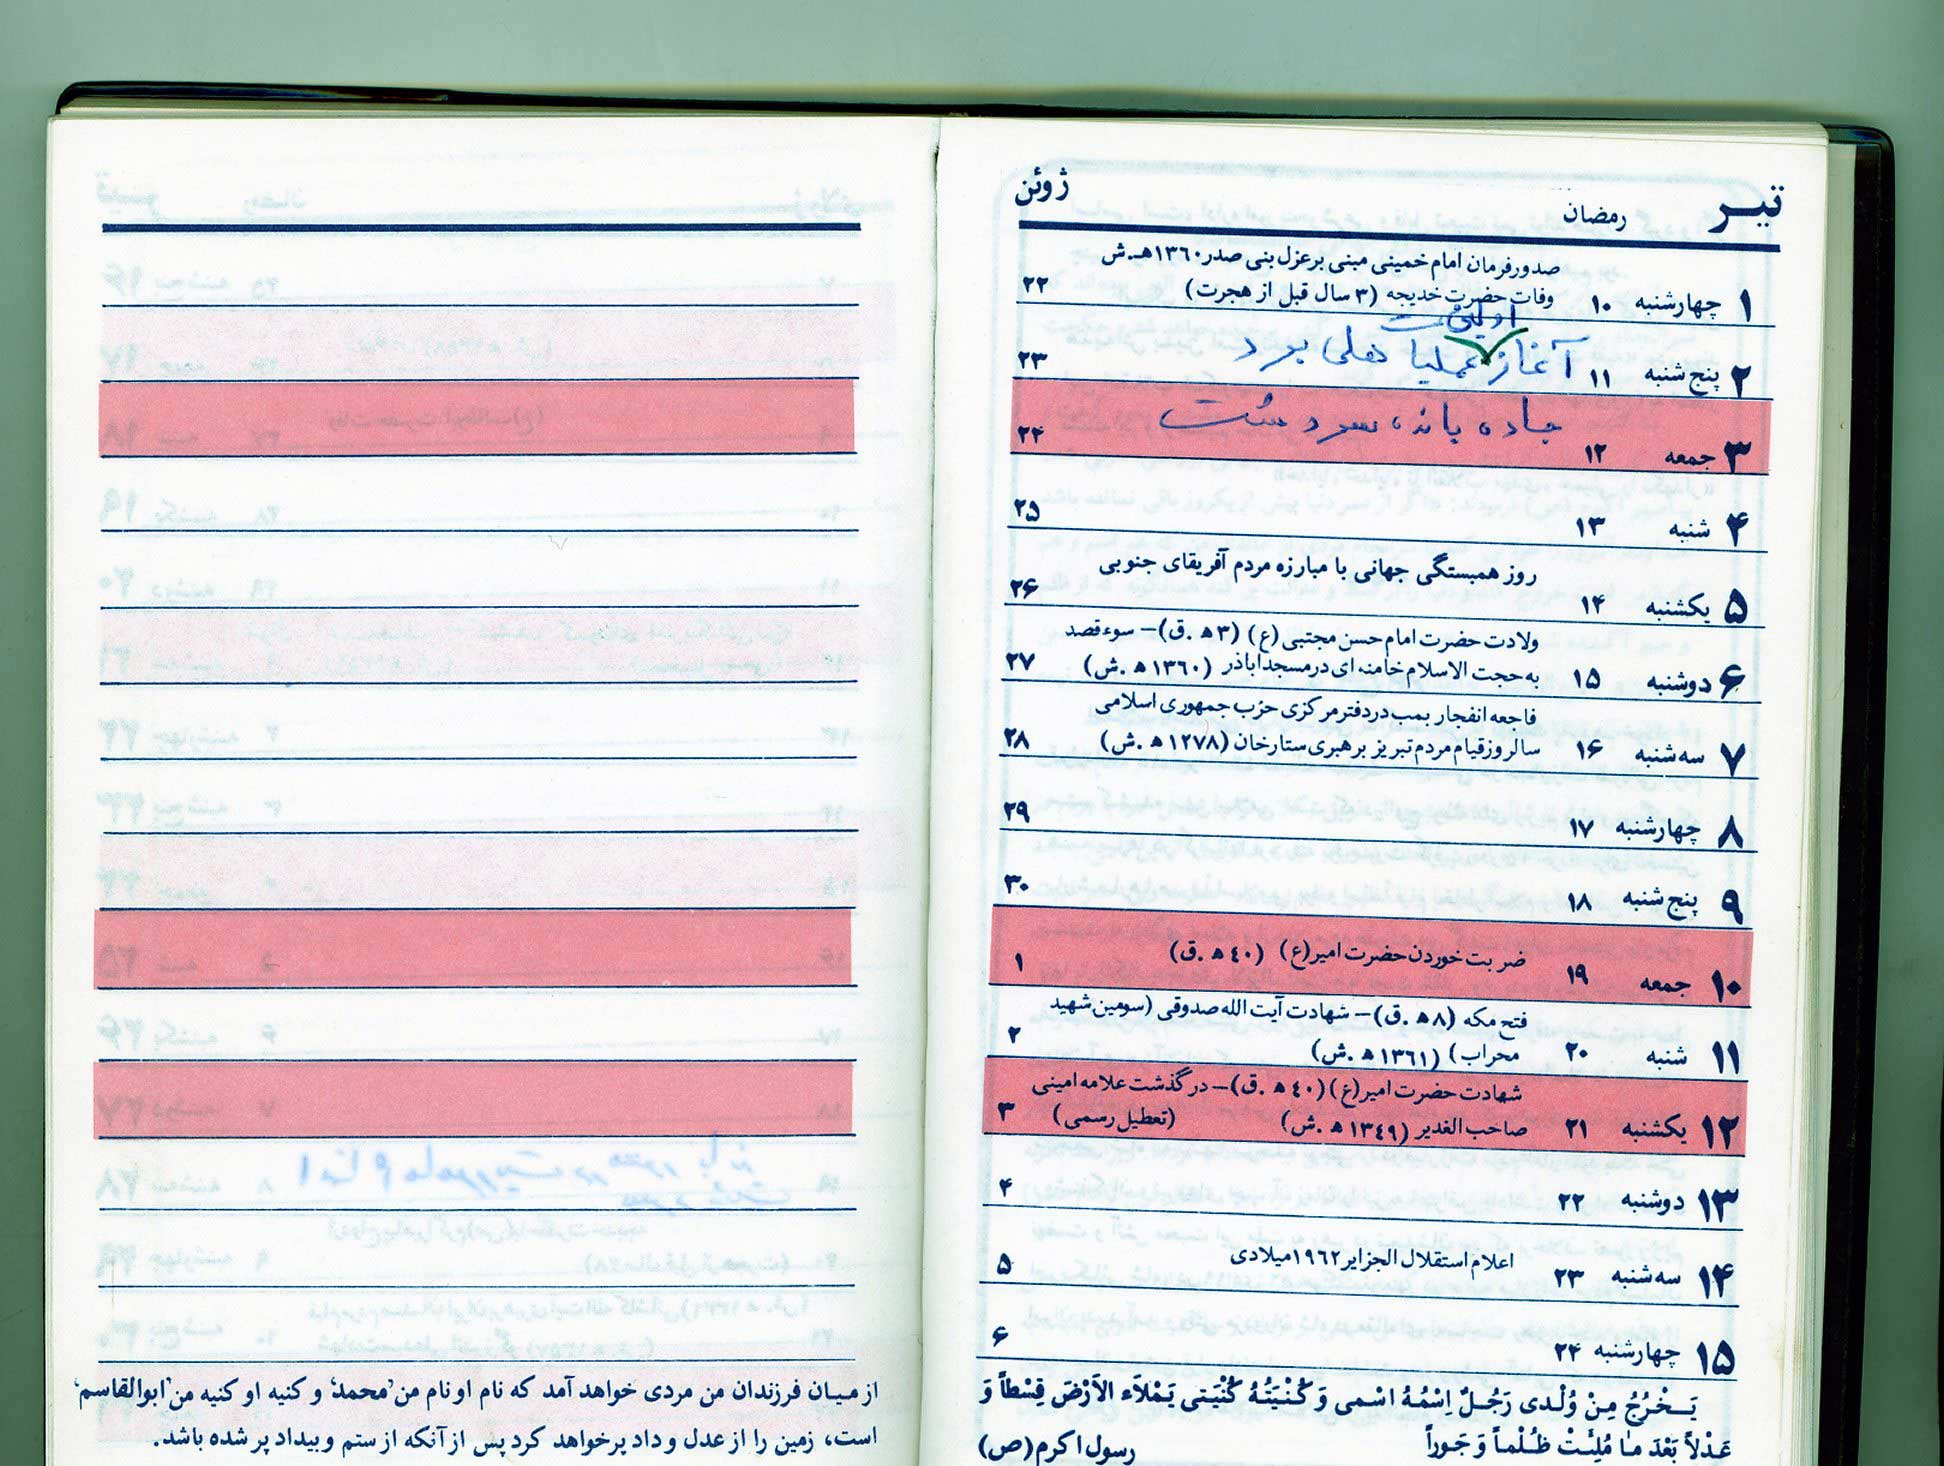 تیر رمضان ژوئن
صدور فرمان امام خمینی مبنی بر عزل بنی صدر ۱۳۶۰ هـ.ش
۱ چهارشنبه ۱۰ وفات حضرت خدیجه (۳ سال قبل از هجرت) ۲۲
۲ پنج شنبه ۱۱ آغاز عملیا ۲۳
۳ جمعه ۱۲ جاده بانه، سردشت ۲۴
۴ شنبه ۱۳ ۲۵
روز همبستگی جهانی با مبارزه مردم آفریقای جنوبی
۵ یکشنبه ۱۴ ۲۶
ولادت حضرت امام حسن مجتبی (ع) (۳ ه‍ .ق) – سوء قصد
۶ دوشنبه ۱۵ به حجت الاسلام خامنه ای در مسجد اباذر (۱۳۶۰ ه‍ .ش) ۲۷
فاجعه انفجار بمب در دفتر مرکزی حزب جمهوری اسلامی
۷ سه شنبه ۱۶ سالروز قیام مردم تبریز برهبری ستارخان (۱۲۷۸ ه‍ .ش) ۲۸
۸ چهارشنبه ۱۷ ۲۹
۹ پنج شنبه ۱۸ ۳۰
۱۰ جمعه ۱۹ ضربت خوردن حضرت امیر(ع) (۴۰ ه‍ .ق) ۱
فتح مکه (۸ ه‍ .ق) – شهادت آیت الله صدوقی (سومین شهید
۱۱ شنبه ۲۰ محراب) (۱۳۶۱ ه‍ .ش) ۲
شهادت حضرت امیر(ع) (۴۰ ه‍ .ق) – درگذشت علامه امینی
۱۲ یکشنبه ۲۱ صاحب الغدیر (۱۳۴۹ ه‍ .ش) (تعطیل رسمی) ۳
۱۳ دوشنبه ۲۲ ۴
۱۴ سه شنبه ۲۳ اعلام استقلال الجزایر ۱۹۶۲ میلادی ۵
۱۵ چهارشنبه ۲۴ ۶
یَخْرُجُ مِنْ وُلْدی رَجُلٌ اِسْمُهُ اسْمی وَ کُنْیَتُهُ کُنْیَتی یَمْلَاءُ الاَرْضَ قِسْطاً وَ
عَدْلاً بَعْدَ مٰا مُلِئَتْ ظُلْماً وَ جَوراً رسول اکرم (ص)
از میان فرزندان من مردی خواهد آمد که نام او نام من "محمد" و کنیه او کنیه من "ابوالقاسم"
است، زمین را از عدل و داد پر خواهد کرد پس از آنکه از ستم و بیداد پر شده باشد.